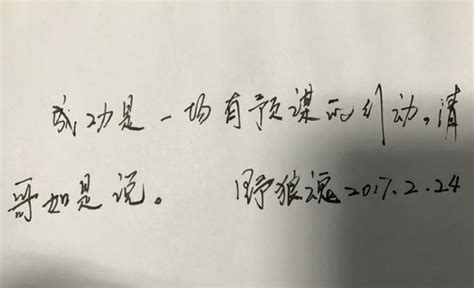 成功是一场有预谋的行动。清
哥如是说。 野狼魂2017.2.24